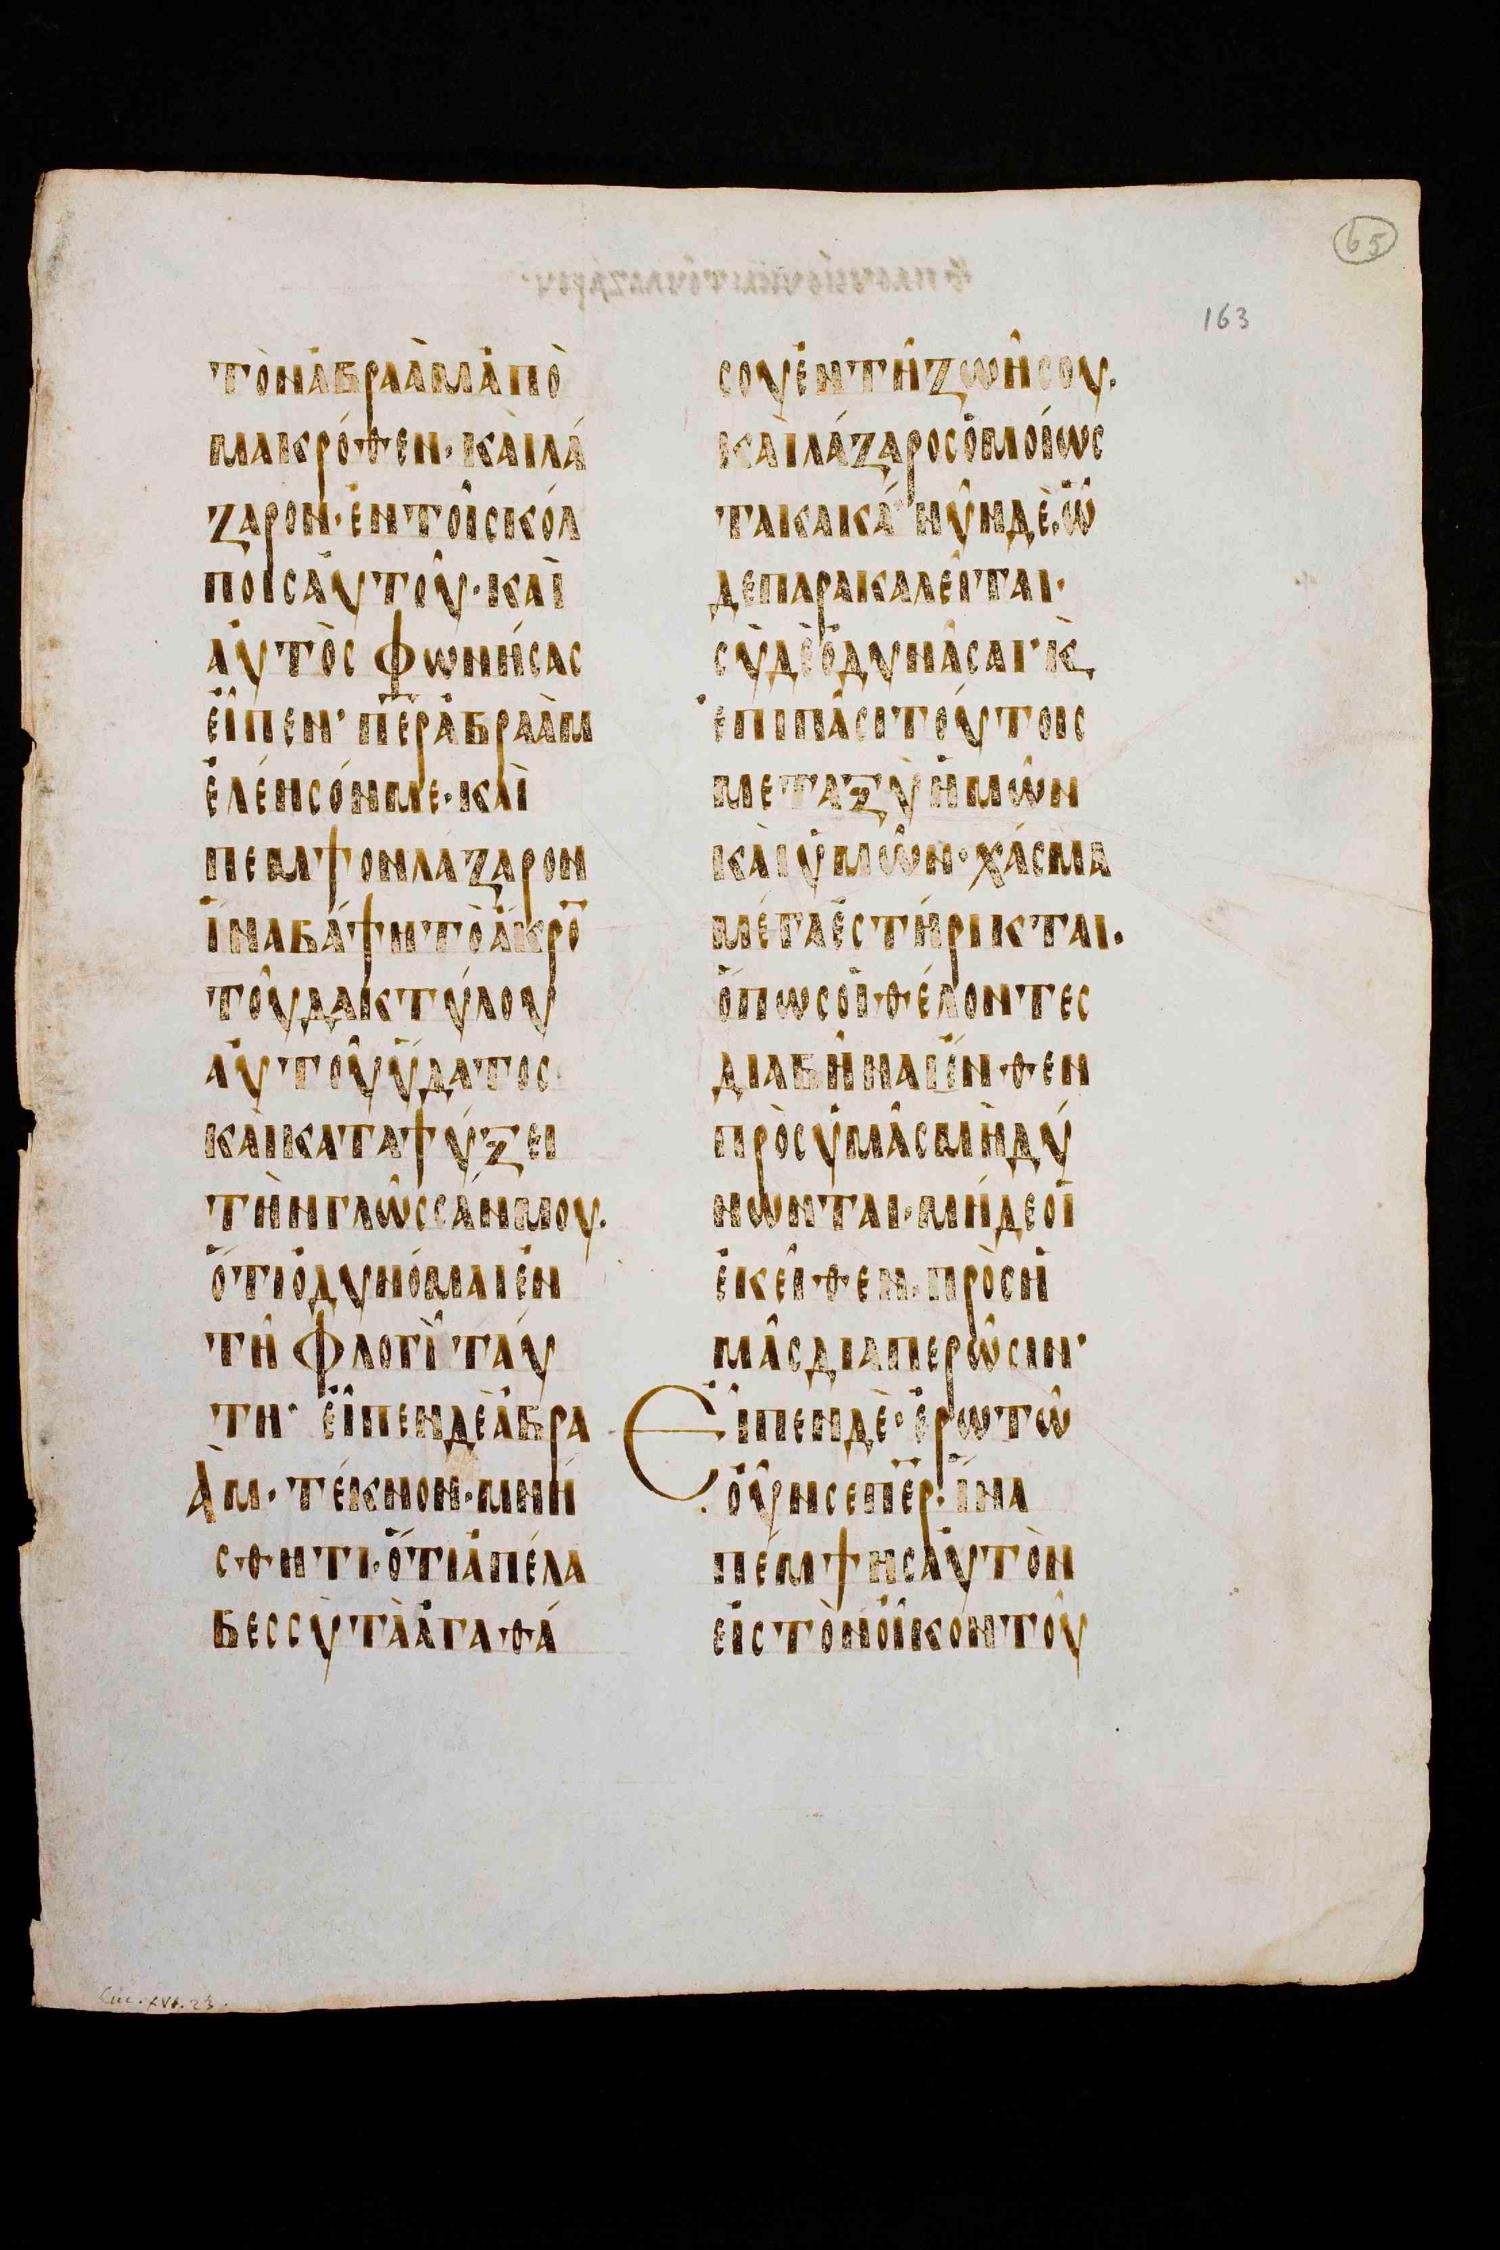 65
163
τὸνἀβραὰμἀπὸ
μακρόθεν·καὶλά
ζαρον·ἐντοῖσκόλ
ποισαὐτοῦ·καὶ
αὐτὸς φωνήσας
εἶπεν· π̅ε̅ρἀβραὰμ
ἐλέησόνμε·καὶ
πεμψονλάζαρον
ἵναβάψητὸἄκρο̅
τοῦδακτύλου
αὐτοῦὕδατος
καὶκαταψύξει
τὴνγλῶσσάνμου.
ὅτιὀδυνόμαιἐν
τῆ φλογὶ ταύ
τη· εἶπενδὲἀβρα
ὰμ· τέκνον·μνή
σθητι·ὅτιἀπέλα
βεςσὺτὰἀγαθά
σουἐντῆζωῆσου.
καὶλάζαροσὁμοίως
τακακά· νῦνδὲ,ὧ
δεπαρακαλεῖται·
σὺδὲὀδυνᾶσαι· κ̀
ἐπιπᾶσιτούτοις
μεταξὺἡμῶν
καὶὑμῶν·χάσμα
μέγαἐστήρικται.
ὅπωσοἱθέλοντες
διαβῆναιἔνθεν
πρὸσὑμᾶσμὴδύ
νωνται·μήδεοἱ
ἐκεῖθεν,πρὸσἡ
μᾶσδιαπερῶσιν·
Εἶπενδὲ·ἐρωτῶ
οὖνσεπ̅ε̅ρ·ἵνα
πέμψησαὐτὸν
εἰστὸνοἶκοντοῦ
Luc. XVI. 23.